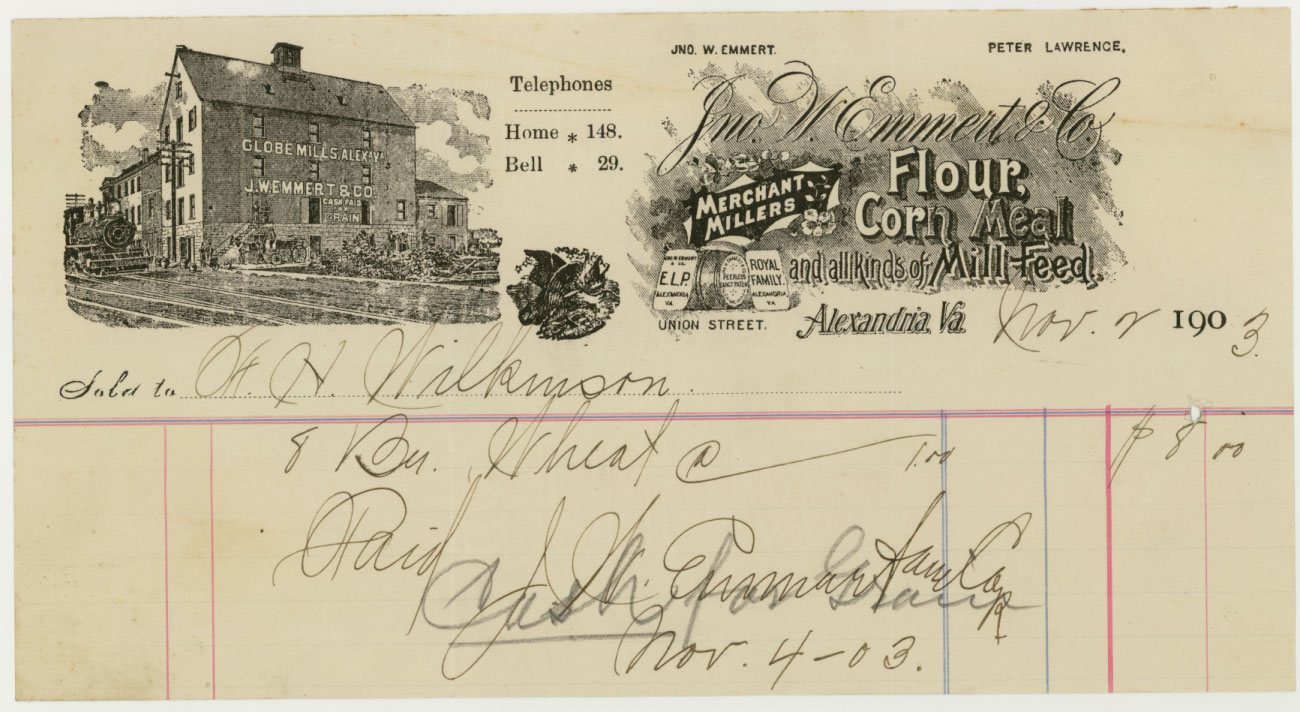 JNO. W. EMMERT.
PETER LAWRENCE.
Telephones
Home * 148.
Bell * 29.
Jno. W. Emmert & Co.
MERCHANT MILLERS
Flour,
Corn Meal
and all kinds of Mill Feed.
GLOBE MILLS, ALEX. VA
J. W. EMMERT & CO.
CASH PAID
FOR
GRAIN
E.L.P.
ALEXANDRIA
VA.
PEERLESS
ROYAL
FAMILY.
ALEXANDRIA
VA
UNION STREET.
Alexandria, Va. Nov. 2 1903.
Sold to H. Wilkinson.
8 Bu. Wheat @ 1.00 $8 00
Paid
J. W. Emmert
Cash for Grain
Nov. 4-03.